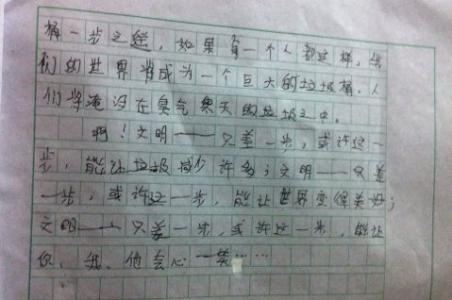 桶一步之遥，如果每一个人都这样，我
们的世界将成为一个巨大的垃圾桶，人
们将淹没在臭气熏天的垃圾之中。
啊！文明——只差一步，或许这一
步，能让垃圾减少许多；文明——只差
一步，或许这一步，能让世界变得美好；
文明——只差一步，或许这一步，能让
你、我、他会心一笑……